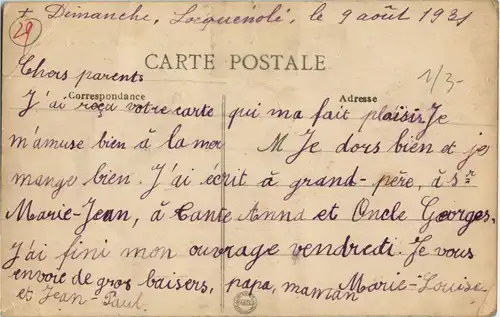 + Dimanche, Locquénolé, le 9 août 1931
29
CARTE POSTALE
Chers parents
1/3-
Correspondance
Adresse
J'ai reçu votre carte qui ma fait plaisir. Je
m'amuse bien à la mer M Je dors bien et je
mange bien. J'ai écrit à grand-père, à Sr
Marie-Jean, à tante Anna et Oncle Georges.
J'ai fini mon ouvrage vendredi. Je vous
envoie de gros baisers, papa, maman Marie-Louise
et Jean-Paul.